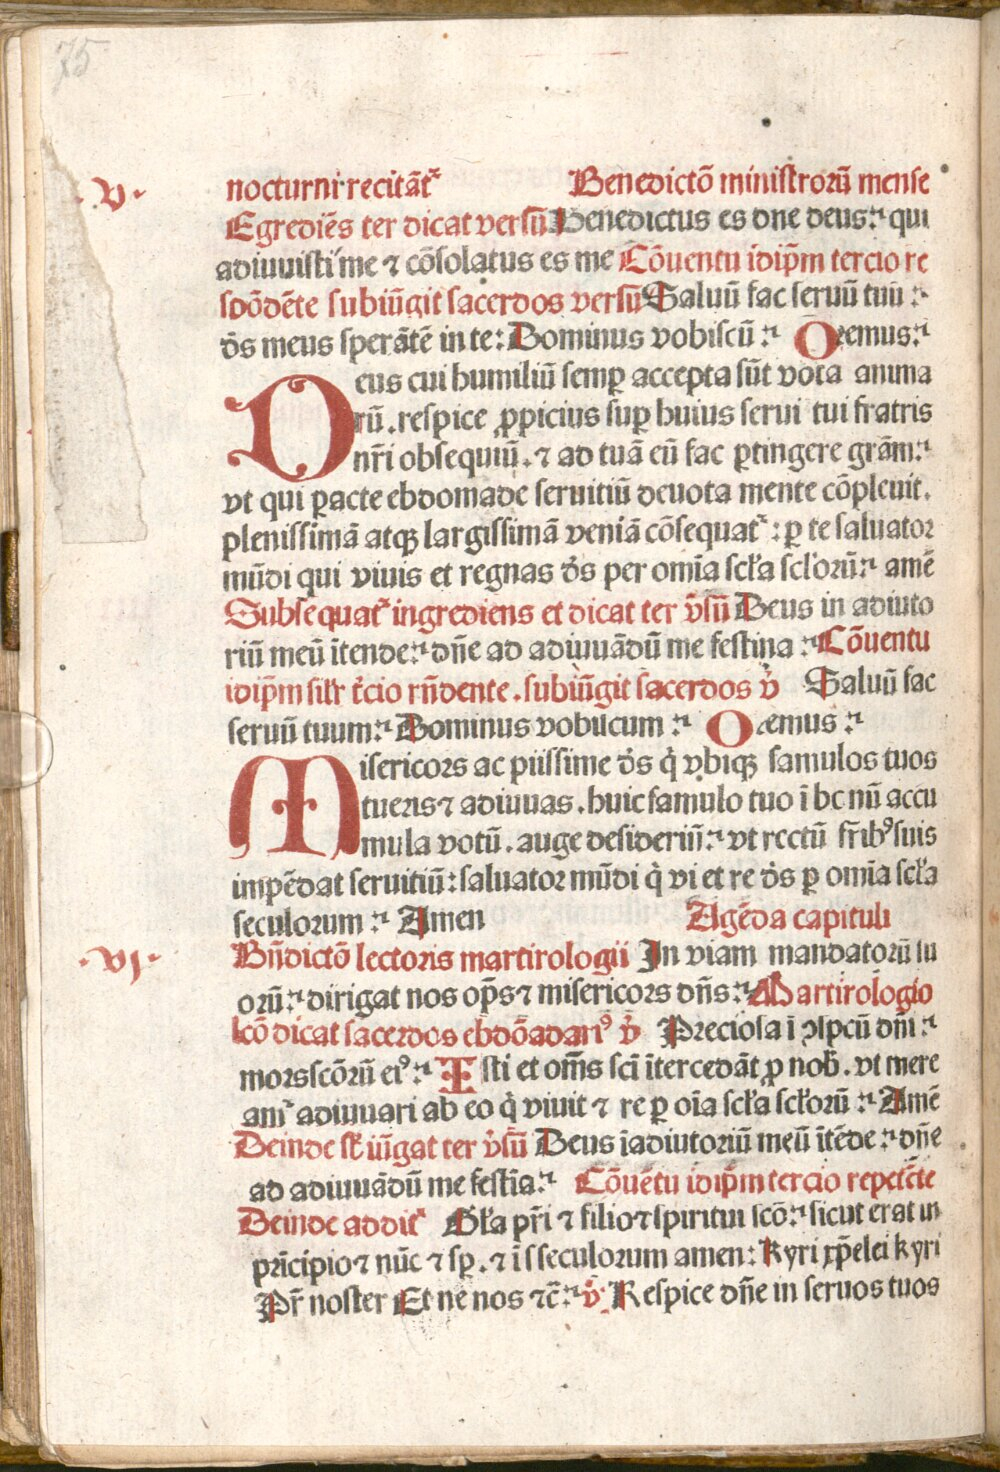 75
·v· nocturni recitãtꝛ Benedictõ ministrorũ mense
Egrediẽs ter dicat versũ Benedictus es dne deus: qui
adiuuisti me ⁊ cõsolatus es me Cõuentu idip̃m tercio re
spõdẽte subiũgit sacerdos versũ Saluũ fac seruũ tuũ :
d̃s meus sperãtẽ in te: Dominus vobiscũ : Oremus:
Deus cui humiliũ semꝑ accepta sũt vota anima
rũ. respice ꝓpicius suꝑ huius serui tui fratris
nr̃i obsequiũ. ⁊ ad tuã eũ fac ꝑtingere grãm:
vt qui ꝑacte ebdomade seruitiũ deuota mente cõpleuit.
plenissimã atqꝫ largissimã veniã cõsequatꝛ: ꝑ te saluator
mũdi qui viuis et regnas d̃s per omĩa scła scłorũ: amẽ
Subsequatꝛ ingrediens et dicat ter ṽsũ Deus in adiuto
riũ meũ ĩtende: dñe ad adiuuãdũ me festina : Cõuentu
idip̃m silr̃ t̃cio rñdente. subiũgit sacerdos v̾ Saluũ fac
seruũ tuum: Dominus vobiscum : Oremus :
Misericors ac piissime d̃s q̇ vbiqꝫ famulos tuos
tueris ⁊ adiuuas. huic famulo tuo ĩ hc nũ accu
mula votũ. auge desideriũ: vt rectũ fr̃ibꝰ suis
impẽdat seruitiũ: saluator mũdi q̇ vi et re d̃s ꝑ omĩa scła
seculorum : Amen Agẽda capituli
·vj· Bñdictõ lectoris martirologii In viam mandatorũ su
orũ: dirigat nos op̃s ⁊ misericors dñs: Martirologio
lcõ dicat sacerdos ebdõadariꝰ v̾ Preciosa ĩ ꝯspcũ dñi :
mors scõrũ eiꝰ: Isti et oms̃ sci ĩtercedãt ꝓ nob̃. vt mere
amꝛ adiuuari ab eo q̇ viuit ⁊ re ꝑ oĩa scła scłorũ : Amẽ
Deinde sł iũgat ter v̾sũ Deus ĩ adiutoriũ meũ ĩtẽde : dñe
ad adiuuãdũ me festĩa: Cõuẽtu idip̃m tercio repetẽte
Deinde additꝛ Gła pr̃i ⁊ filio ⁊ spiritui scõ: sicut erat in
pr̃cipio ⁊ nũc ⁊ sꝑ. ⁊ ĩ s seculorum amen: kyri xp̃elei kyri
Pr̃ noster Et ne nos ⁊c̃: v̾ Respice dñe in seruos tuos